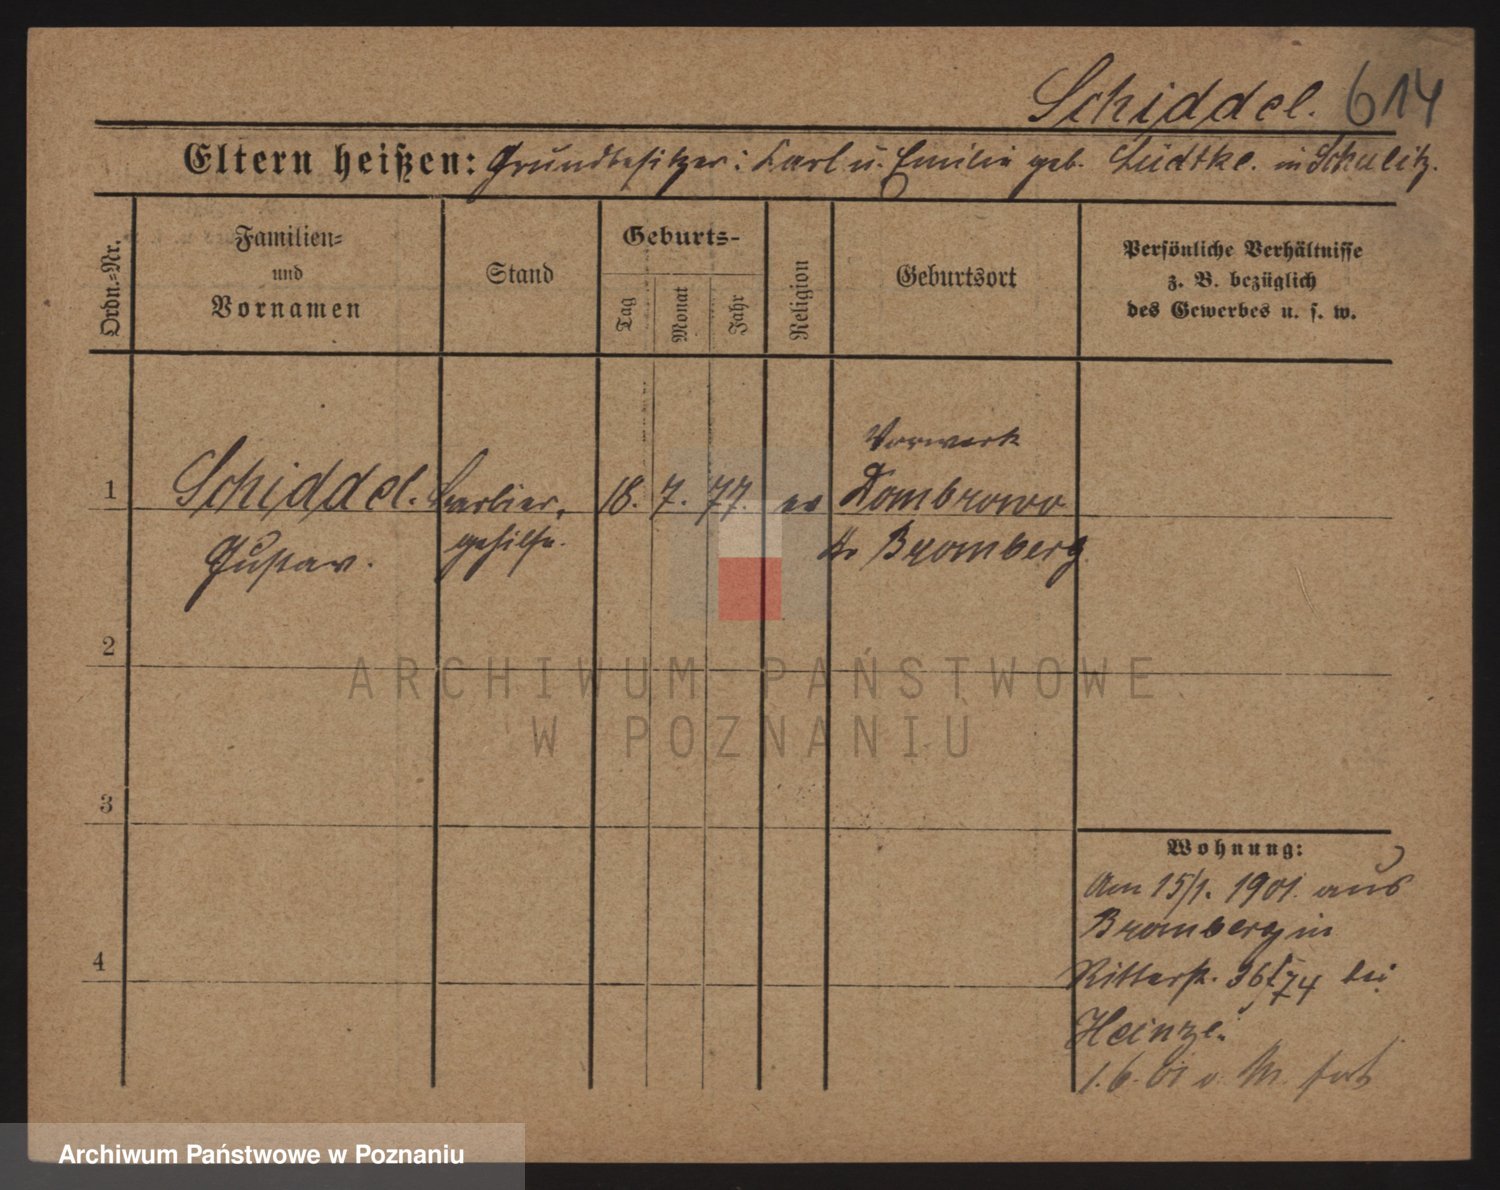 Schiddel. 614
Eltern heißen: Grundbesitzer: Karl u. Emilie geb. Lüdtke. in Schulitz.
Ordn.-Nr.
Familien-
und
Vornamen
Stand
Geburts-
Tag
Monat
Jahr
Religion
Geburtsort
Persönliche Verhältnisse
z. B. bezüglich
des Gewerbes u. s. w.
Vorwerk
1 Schiddel. Barbier, 18. 7. 77. ev Dombrowo
Gustav. gehilfe. Kr Bromberg
2
ARCHIWUM PAŃSTWOWE
W POZNANIU
3
4
Wohnung:
Am 15/1. 1901. aus
Bromberg in
Ritterst. 36 I 74 bei
Heinze.
1.6.01 v.
Archiwum Państwowe w Poznaniu